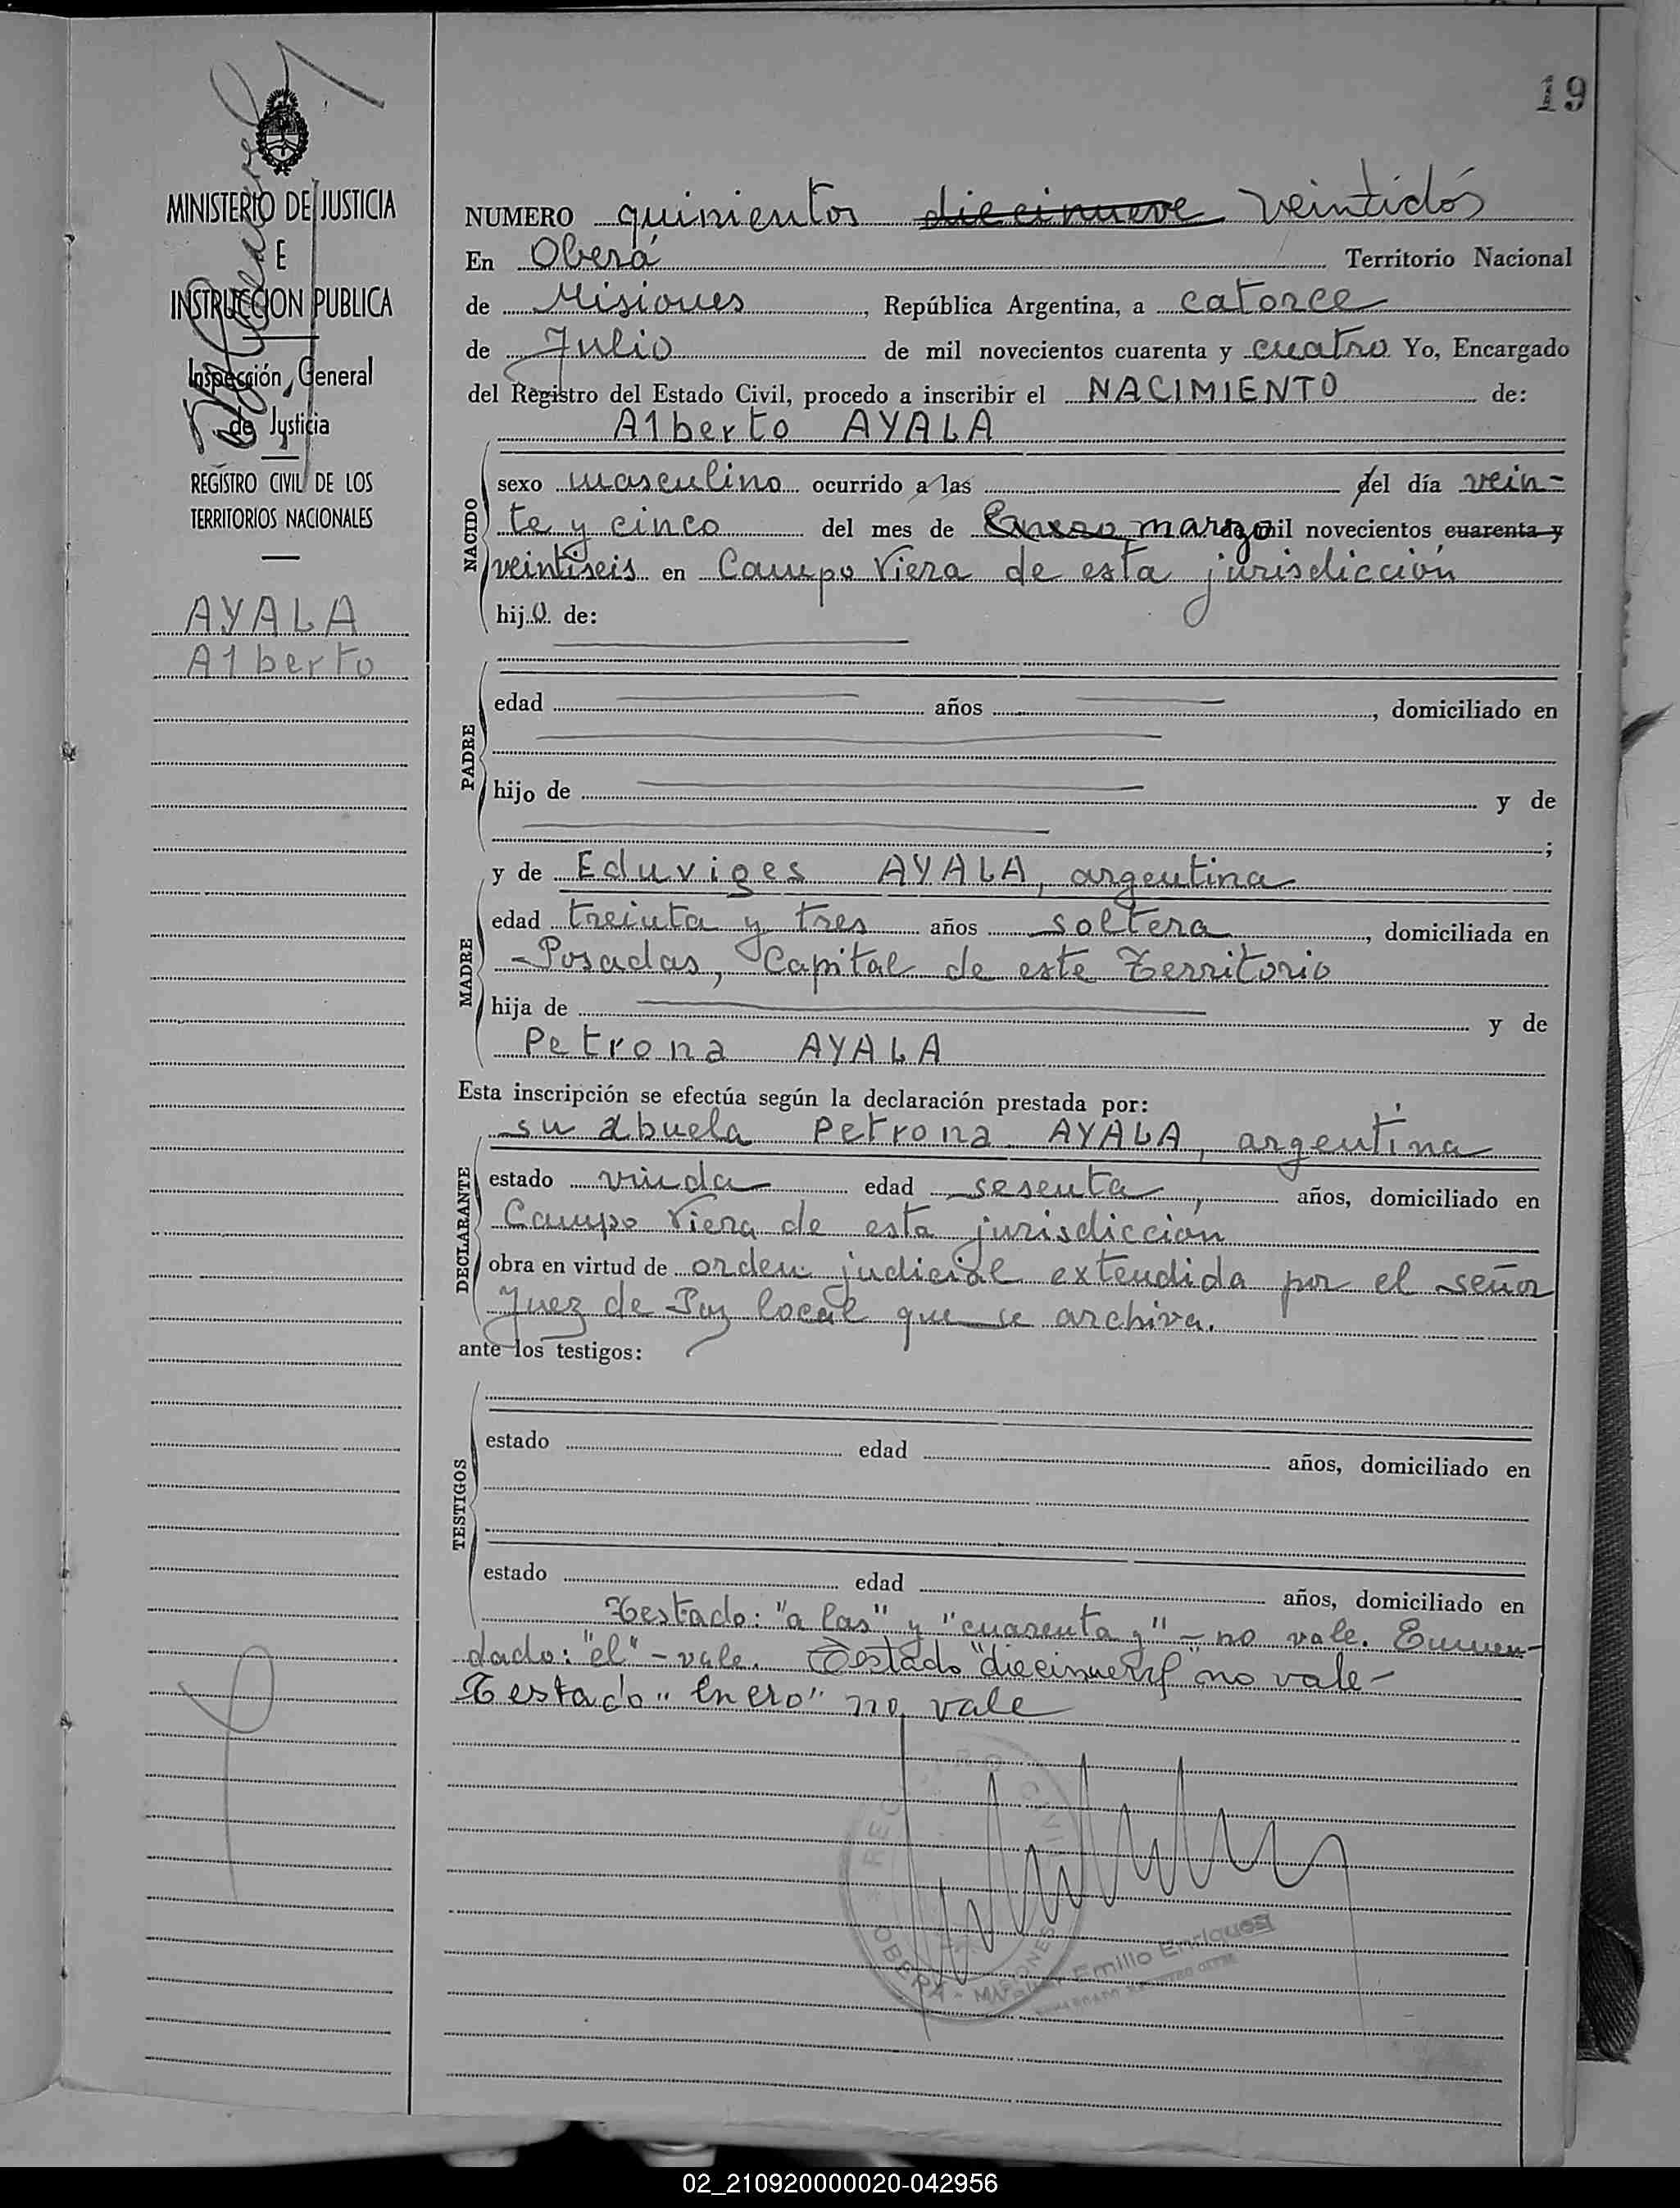 19
MINISTERIO DE JUSTICIA
E
INSTRUCCION PUBLICA
Inspección General
de Justicia
REGISTRO CIVIL DE LOS
TERRITORIOS NACIONALES
AYALA
Alberto
NUMERO quinientos diecinueve veintidós
En Oberá Territorio Nacional
de Misiones, República Argentina, a catorce
de Julio de mil novecientos cuarenta y cuatro Yo, Encargado
del Registro del Estado Civil, procedo a inscribir el NACIMIENTO de:
Alberto AYALA
NACIDO
sexo masculino ocurrido a las del día vein-
te y cinco del mes de Enero marzo mil novecientos cuarenta y
veintiseis en Campo Viera de esta jurisdicción
hijo de:
PADRE
edad años , domiciliado en
hijo de y de
;
y de Eduviges AYALA, argentina
MADRE
edad treinta y tres años soltera, domiciliada en
Posadas, Capital de este Territorio
hija de y de
Petrona AYALA
Esta inscripción se efectúa según la declaración prestada por:
su abuela Petrona AYALA, argentina
DECLARANTE
estado viuda edad sesenta, años, domiciliado en
Campo Viera de esta jurisdicción
obra en virtud de orden judicial extendida por el señor
Juez de Paz local que se archiva.
ante los testigos:
TESTIGOS
estado edad años, domiciliado en
estado edad años, domiciliado en
Testado: "a las" y "cuarenta y" - no vale. Enmen-
dado: "el" - vale. Testado "diecinueve" no vale -
Testado "Enero" no vale
REGISTRO CIVIL
OBERA - MISIONES
Emilio Enriquez
02_210920000020-042956